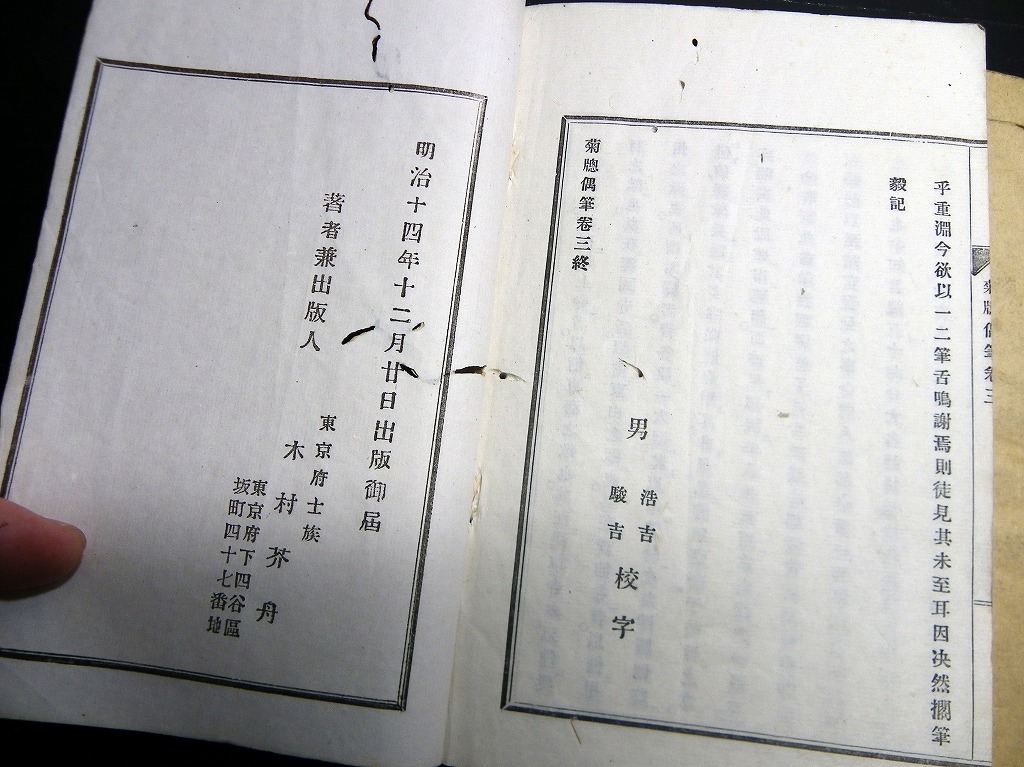 菊牕偶筆卷三
乎重淵今欲以一二筆舌鳴謝焉則徒見其未至耳因决然擱筆
毅記
男
浩吉
駿吉
校字
菊牕偶筆卷三終
明治十四年十二月廿日出版御屆
著者兼出版人
東京府士族
木村芥舟
東京府下四谷區
坂町四十七番地